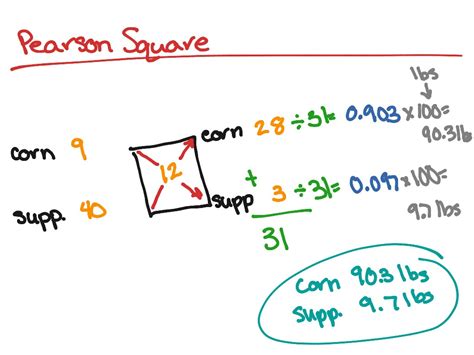 Pearson Square
lbs
corn 9
12
corn 28 ÷ 31 = 0.903 × 100 =
90.3 lbs
supp. 40
supp + 3 ÷ 31 = 0.097 × 100 =
9.7 lbs
31
Corn 90.3 lbs
Supp. 9.7 lbs